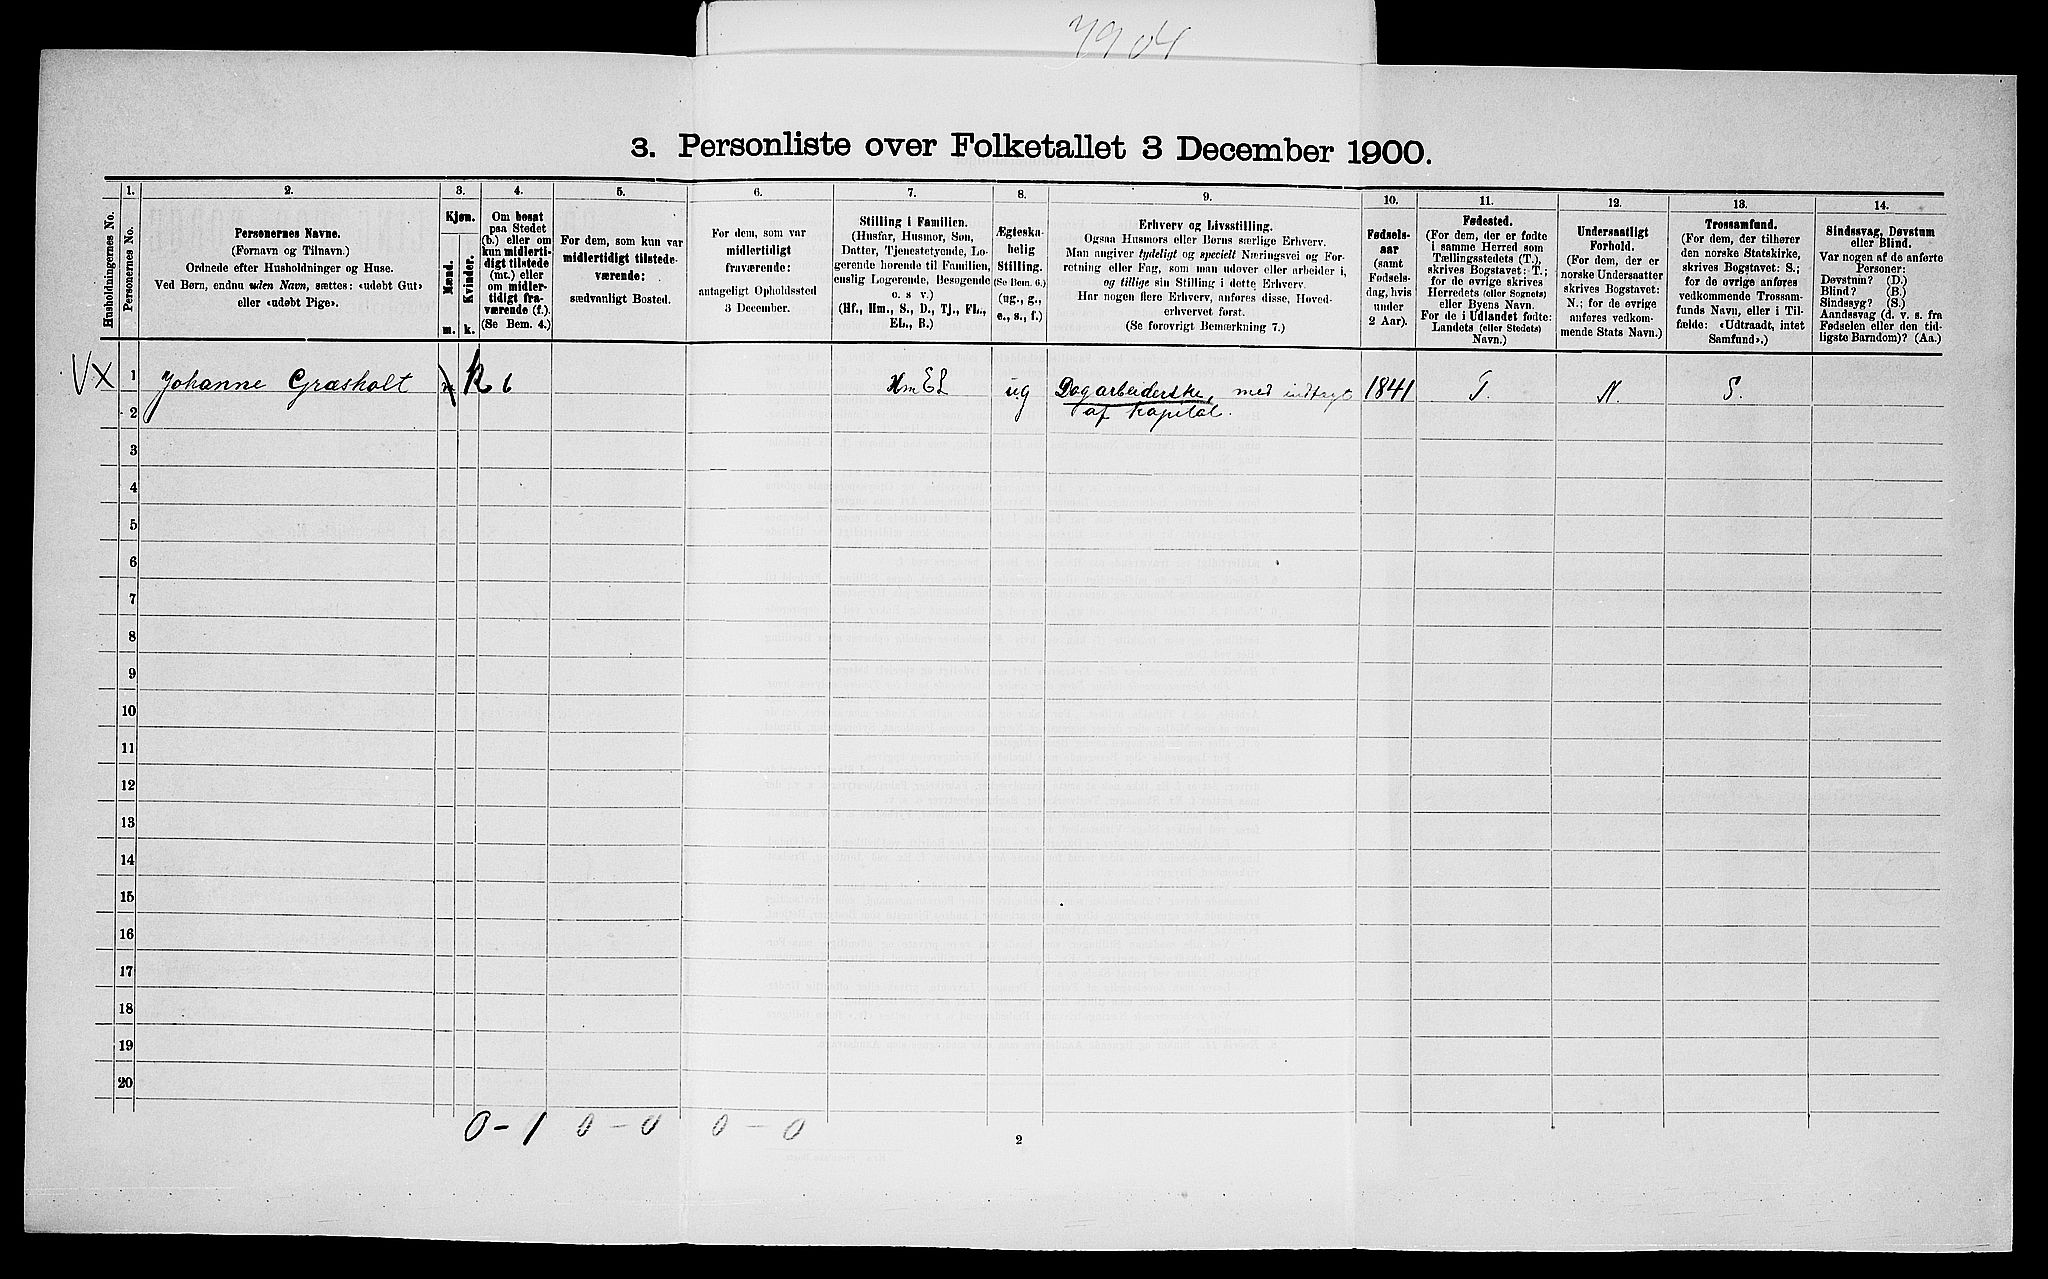 3. Personliste over Folketallet 3 December 1900.
1.
2.
3.
4.
5.
6.
7.
8.
9.
10.
11.
12.
13.
14.
Husholdningernes No.
Personernes No.
Personernes Navne.
(Fornavn og Tilnavn.)
Ordnede efter Husholdninger og Huse.
Ved Børn, endnu uden Navn, sættes: «udøbt Gut»
eller «udøbt Pige».
Kjøn.
Mænd.
Kvinder.
m.
k.
Om bosat
paa Stedet
(b.) eller om
kun midlerti-
digt tilstede
(mt.) eller
om midler-
tidigt fra-
værende (f.).
(Se Bem. 4.)
For dem, som kun var
midlertidigt tilstede-
værende:
sædvanligt Bosted.
For dem, som var
midlertidigt
fraværende:
antageligt Opholdssted
3 December.
Stilling i Familien.
(Husfar, Husmor, Søn,
Datter, Tjenestetyende, Lo-
gerende hørende til Familien,
enslig Logerende, Besøgende
o. s v.)
(Hf., Hm., S., D., Tj., FL.,
EL., B.)
Ægteska-
belig
Stilling.
(Se Bem. 6.)
(ug., g.,
e., s., f.)
Erhverv og Livsstilling.
Ogsaa Husmors eller Børns særlige Erhverv.
Man angiver tydeligt og specielt Næringsvei og For-
retning eller Fag, som man udøver eller arbeider i,
og tillige sin Stilling i dette Erhverv.
Har nogen flere Erhverv, anføres disse, Hoved-
erhvervet først.
(Se forøvrigt Bemærkning 7.)
Fødsels-
aar
(samt
Fødsels-
dag, hvis
under
2 Aar).
Fødested.
(For dem, der er fødte
i samme Herred som
Tællingsstedets (T.),
skrives Bogstavet: T.;
for de øvrige skrives
Herredets (eller Sognets)
eller Byens Navn.
For de i Udlandet fødte:
Landets (eller Stedets)
Navn.)
Undersaatligt
Forhold.
(For dem, der er
norske Undersaatter
skrives Bogstavet:
N.; for de øvrige
anføres vedkom-
mende Stats Navn.)
Trossamfund.
(For dem, der tilhører
den norske Statskirke,
skrives Bogstavet: S.;
for de øvrige anføres
vedkommende Trossam-
funds Navn, eller i Til-
fælde: «Udtraadt, intet
Samfund».)
Sindssvag, Døvstum
eller Blind.
Var nogen af de anførte
Personer:
Døvstum? (D.)
Blind? (B.)
Sindssyg? (S.)
Aandssvag (d. v. s. fra
Fødselen eller den tid-
ligste Barndom)? (Aa.)
1 Johanne Græsholt k b Hm EL ug Dagarbeiderske, med indtægt 1841 T. N. S.
af Kapital.
2
3
4
5
6
7
8
9
10
11
12
13
14
15
16
17
18
19
20
0 - 1 0 - 0 0 - 0
2